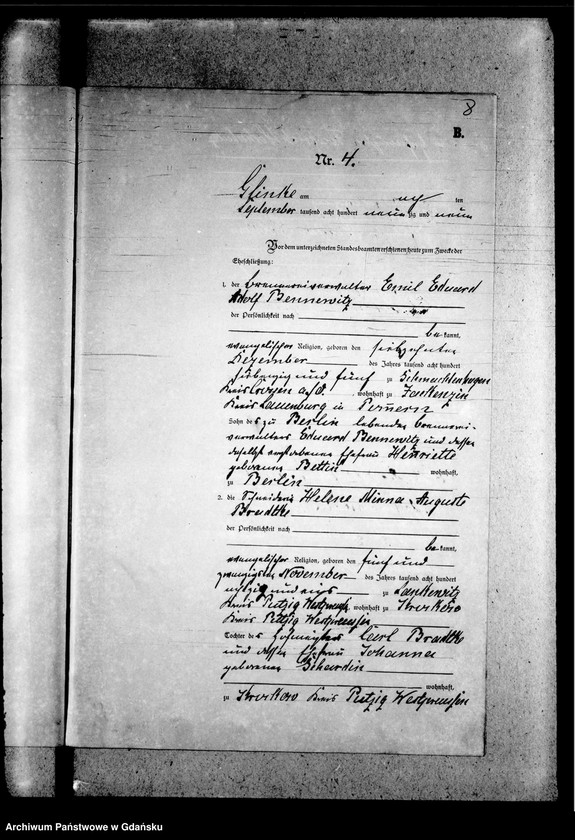 8
B.
Nr. 4.
Glinke am ten
September tausend acht hundert neunzig und neun
Vor dem unterzeichneten Standesbeamten erschienen heute zum Zwecke der
Eheschließung:
1. der Brennereiverwalter Emil Eduard
Adolf Bennewitz
der Persönlichkeit nach
bekannt,
evangelischer Religion, geboren den siebzehnten
Dezember des Jahres tausend acht hundert
siebenzig und fünf zu
Kreis a./d. , wohnhaft zu
Kreis Lauenburg in Pommern
Sohn des zu Berlin lebenden Brennerei-
verwalters Eduard Bennewitz und dessen
daselbst verstorbenen Ehefrau Henriette
geborenen Bettin wohnhaft,
zu Berlin
2. die Schneiderin Helene Minna Auguste
Bradtke
der Persönlichkeit nach
bekannt,
evangelischer Religion, geboren den fünf und
zwanzigsten November des Jahres tausend acht hundert
achtzig und eins zu
Kreis Putzig Westpreussen, wohnhaft zu Krockow
Kreis Putzig Westpreussen
Tochter des Hofmeisters Carl Bradtke
und dessen Ehefrau Johanna
geborenen
wohnhaft,
zu Krockow Kreis Putzig Westpreussen
Archiwum Państwowe w Gdańsku